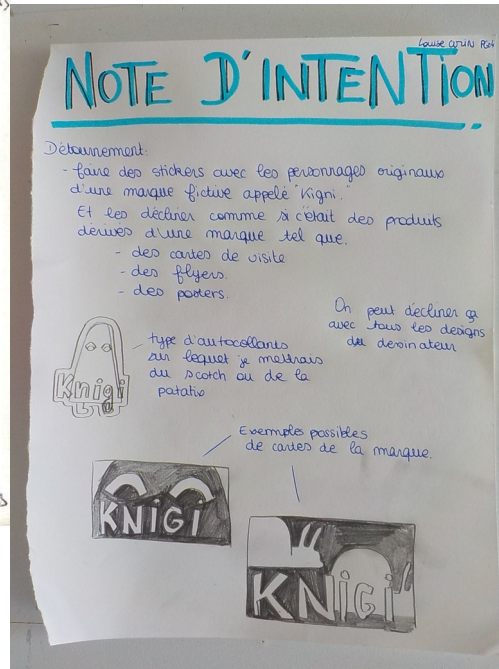 Louise
NOTE D'INTENTION
Détournement:
- faire des stickers avec les personnages originaux
d'une marque fictive appelé "Kigni."
Et les décliner comme si c'était des produits
dérivés d'une marque tel que.
- des cartes de visite
- des flyers.
- des posters.
On peut décliner ça
avec tous les designs
du dessinateur
type d'autocollants
sur lequel je mettrais
du scotch ou de la
patafix
Knigi
Exemples possibles
de cartes de la marque.
KNIGI
KNIGI